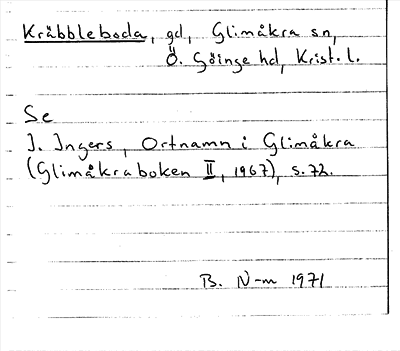 Kråbbleboda, gd, Glimåkra sn,
Ö. Göinge hd, Krist. l.
Se
I. Ingers, Ortnamn i Glimåkra
(Glimåkraboken II, 1967), s. 72.
B. N-m 1971